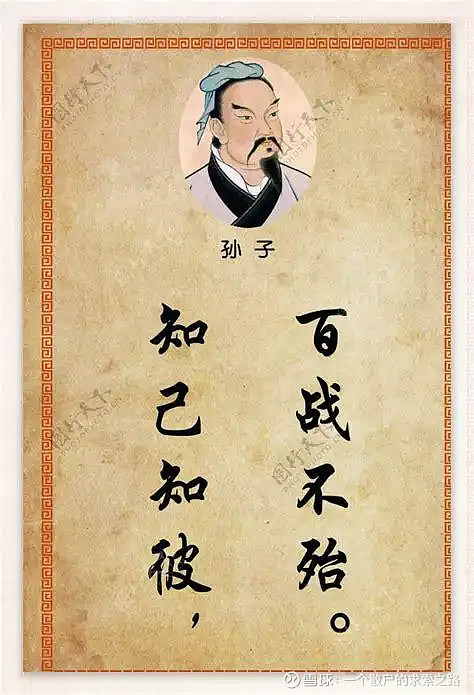 孙子
知己知彼，
百战不殆。
图行天下
PHOTOPHOTO.CN
雪球：一个散户的求索之路